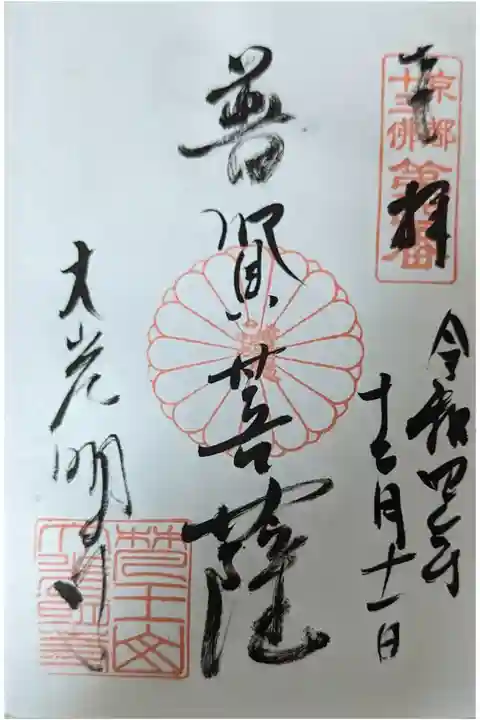 奉拝
京都
十三佛
第四番
令和四年
十二月十一日
普賢菩薩
大光明寺